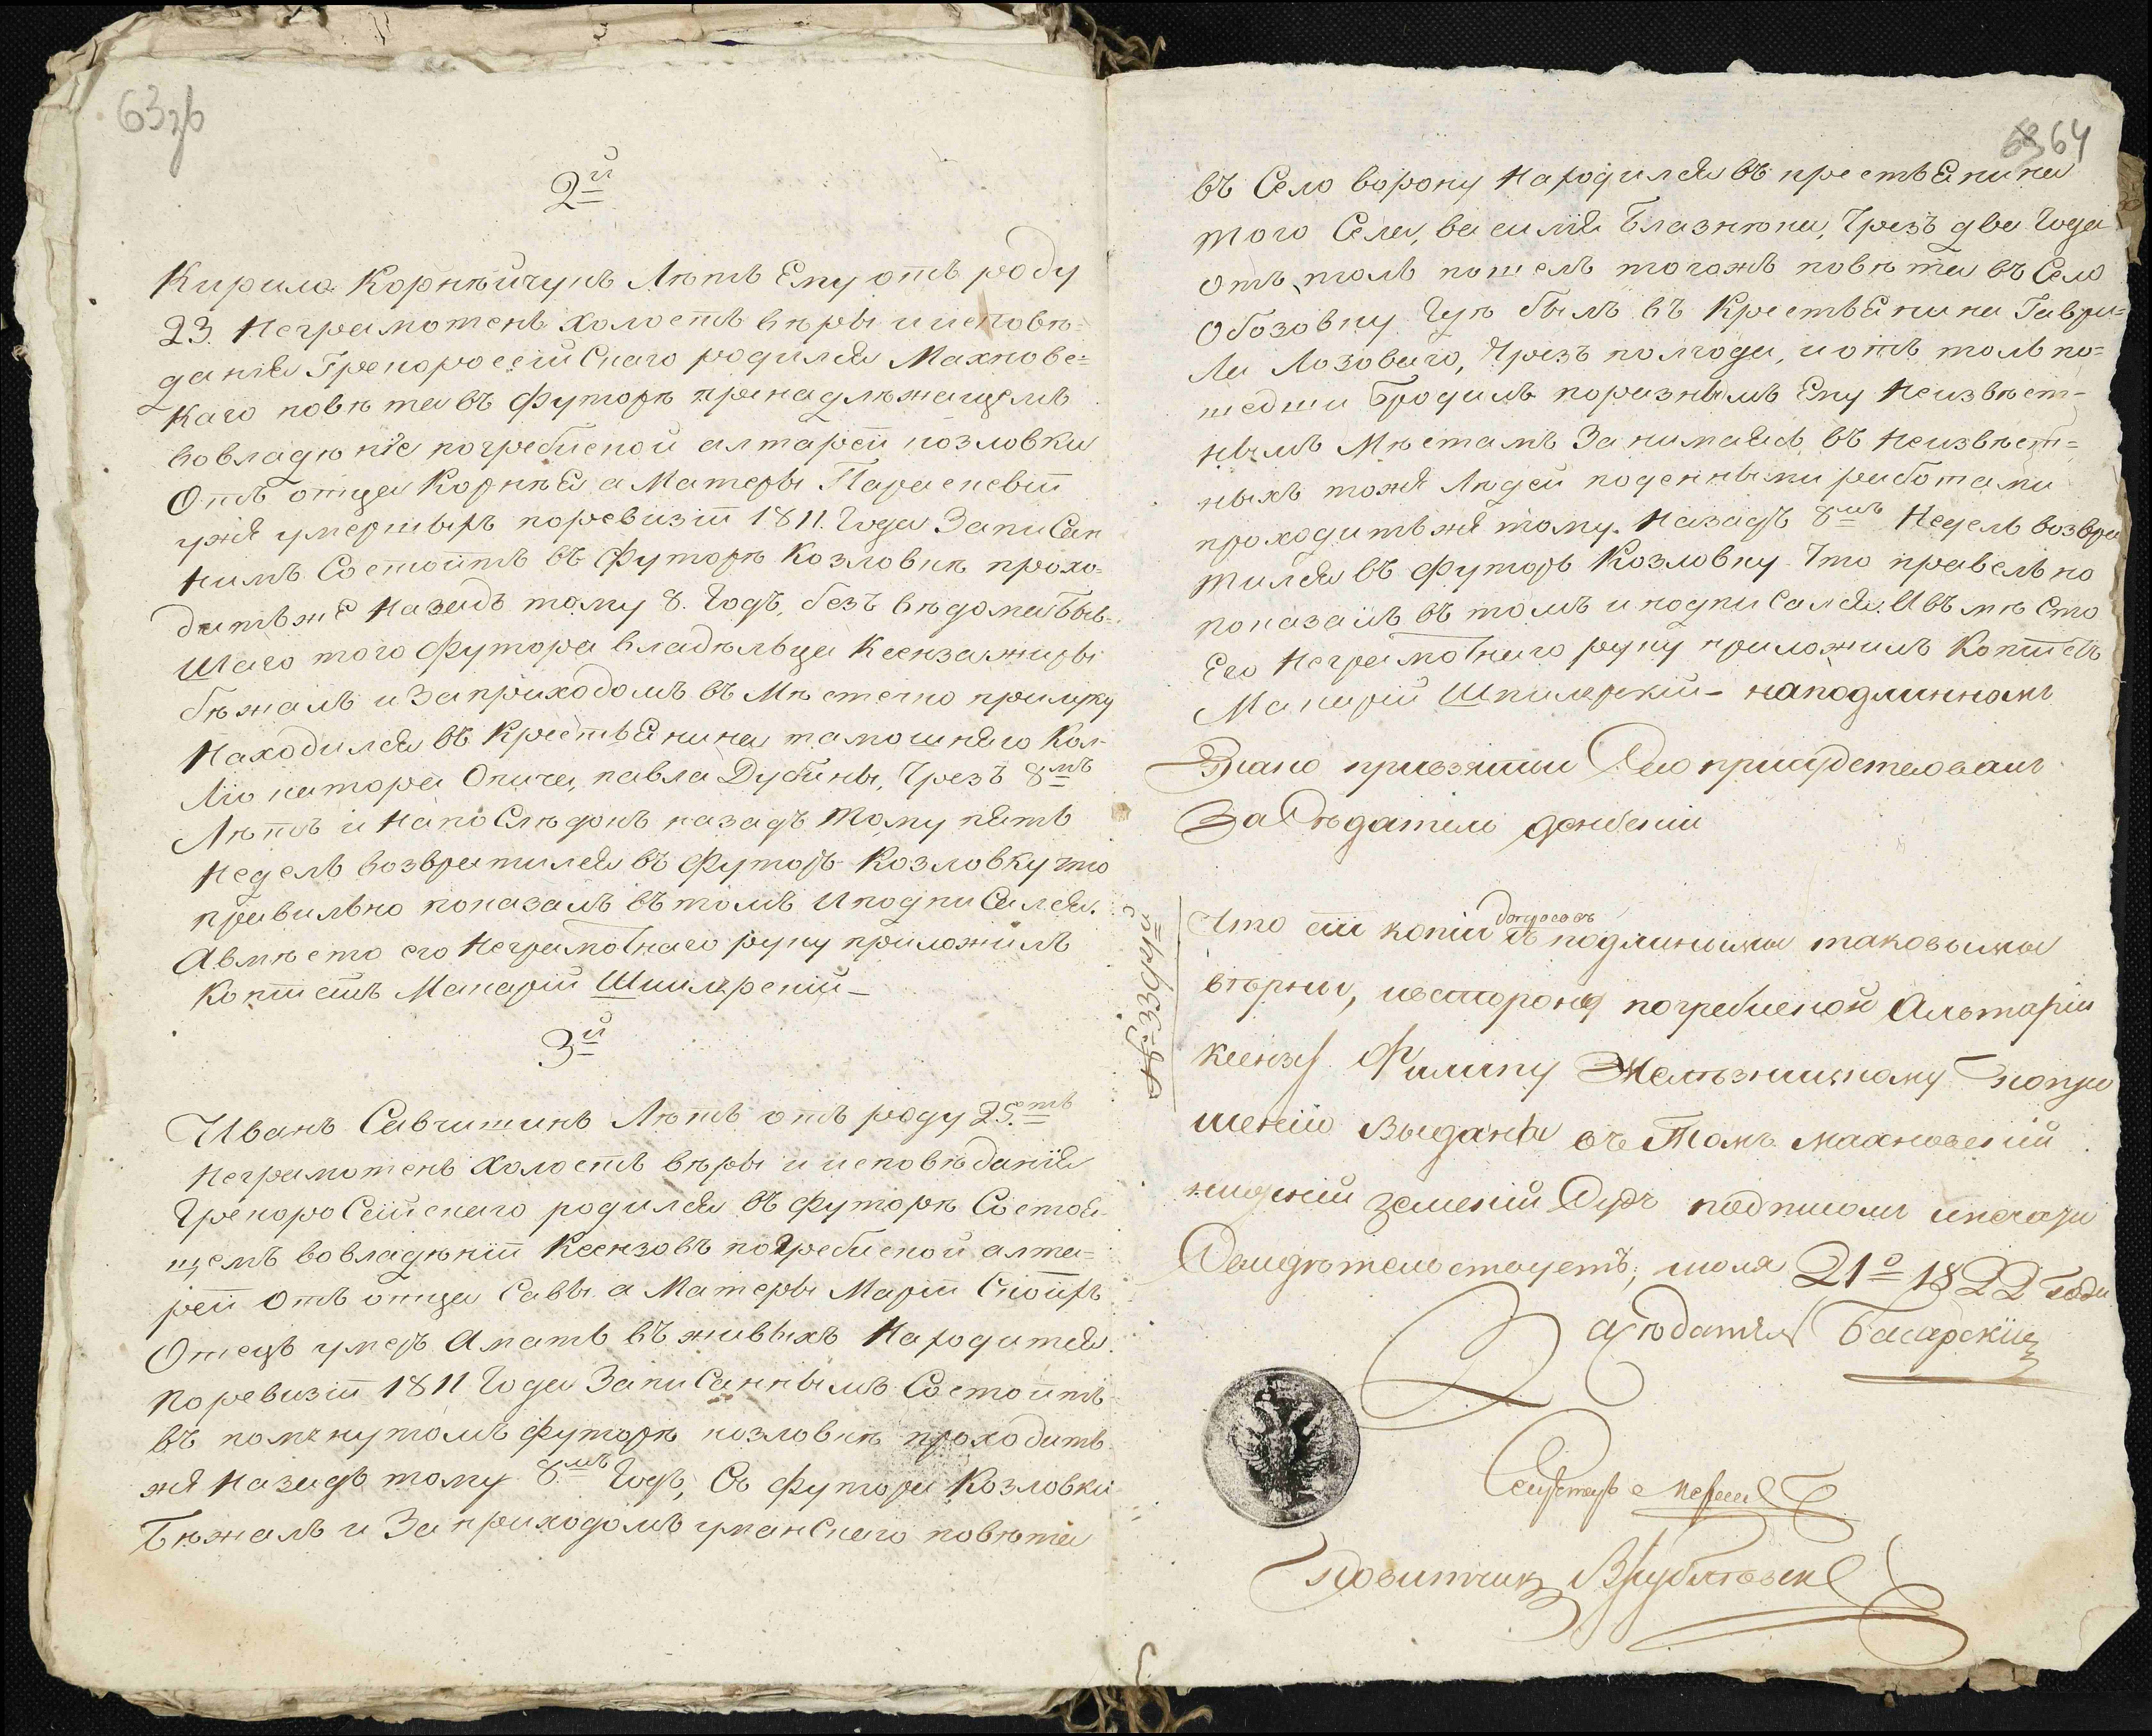 63зв
2й
Кирила Корнѣйчукъ Лѣтъ Ему отъ роду
23. Неграмотенъ холостъ вѣры и исповѣ=
данія Грекоросссійскаго родился Махновс=
каго повѣта въ футорѣ принадлѣжащемъ
во владѣніе погребиской алтарей козловки
Отъ отца Корнѣя а Матеры Параскевіи
ужя умершыхъ поревизіи 1811. Года ЗапиСан
нимъ Состоитъ въ футорѣ Козловкѣ прохо=
дитъже Назадъ тому 8. Годъ, безъ вѣдома Быв=
шаго того футора владѣльца Ксензажиры
бѣжалъ и Заприходомъ въ Мѣстечко прилуку
Находился въ Крестьянина тамошняго Кол-
Лѣкатора Опича, павла Дубины, Чрезъ 8мъ
Лѣтъ и НапоСлѣдокъ назадъ тому пять
Недель возвратился въ футоръ Козловку что
правильно показалъ въ томъ и подпиСался.
Авмѣсто его Неграмотнаго руку приложилъ
Коптистъ Макарій Шпилярскій–
3й
Иванъ Савчишинъ Лѣтъ отъ роду 25.ть
Неграмотенъ Холостъ вѣры и исповѣданія
ГрекороСсійскаго родился въ футорѣ Состоя-
щемъ вовладѣніи Ксензовъ погребиской алта=
рей отъ отца Саввы а Матеры Маріи Сихъ
Отецъ умеръ Амать въ живыхъ Находится.
поревизіи 1811 Года ЗапиСаннымъ Состоитъ
въ помянутомъ футорѣ козловкѣ проходитъ
жя Назадъ тому 8мъ Годъ, Съ футора Козловки
Бѣжалъ и Заприходомъ уманСкаго повѣта
64
въ Село ворону Находился въ крестьянина
того Села, василія Блазнюка, Чрезъ два Года
отъ толь пошелъ тогожъ повѣта въ Село
Обозовку Гдѣ былъ въ Крестьянина Гаври=
Ла Лозоваго, Чрезъ полгода, и отъ толь по=
шедши Бродилъ поразнымъ Ему Неизвѣст-
нымъ Мѣстамъ Занимаясь въ Неизвѣст=
ныхъ тожя Людей поденными работами
проходитъжя тому. Назадъ 8мъ Недель возвра
тился въ футоръ Козловку Что правельно
показалъ въ томъ и подписался. Авъ мѣСто
Его Неграмотнаго руку приложилъ Коптистъ
Макарій Шпилярскій– наподлинномъ
тако привзятіи Сего присудствовалъ
ЗаСѣдатель
Что сіи копіи съ подлинными таковыми
вѣрны, и въ стороны погребиской Альтаріи
ксензу Филипу Желѣзницкому попро
шенію выданы въ томъ махновскій
нижній земскій Судъ подписомъ ипечати
Свидѣтельствуетъ; июля 21о 1822 Года
Засѣдатель
Секретарь
Повитчикъ